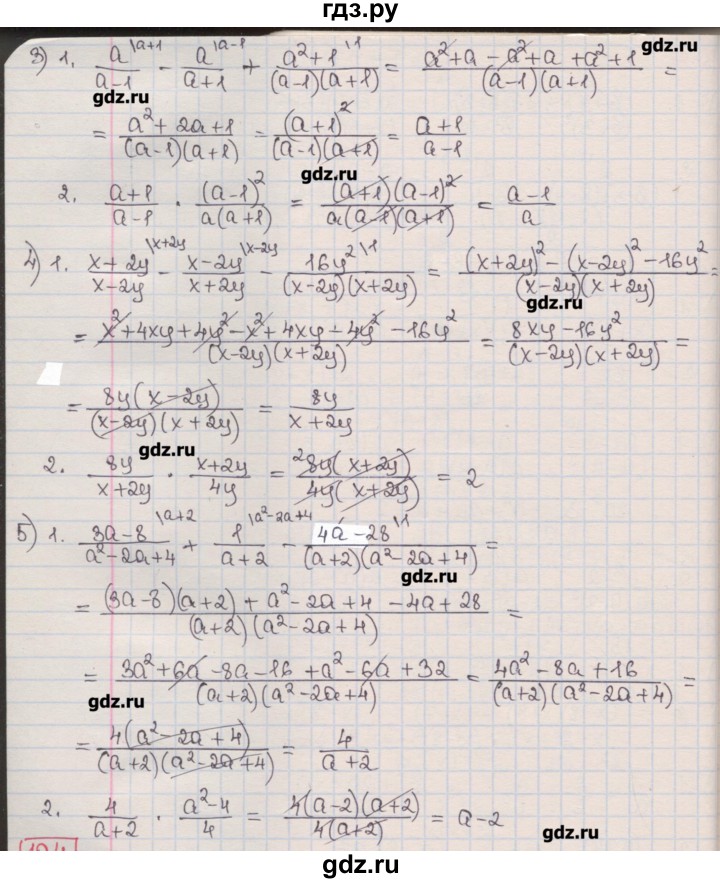 гдз.ру
3) 1. a\a+1 / (a-1) - a\a-1 / (a+1) + (a²+1)\1 / ((a-1)(a+1)) = (a²+a - a²+a + a²+1) / ((a-1)(a+1)) =
gdz.ru
gdz.ru
= (a²+2a+1) / ((a-1)(a+1)) = (a+1)² / ((a-1)(a+1)) = (a+1) / (a-1)
gdz.ru
2. (a+1) / (a-1) · (a-1)² / (a(a+1)) = (a+1)(a-1)² / (a(a-1)(a+1)) = (a-1) / a
4) 1. (x+2y)\x+2y / (x-2y) - (x-2y)\x-2y / (x+2y) - 16y²\1 / ((x-2y)(x+2y)) = ((x+2y)² - (x-2y)² - 16y²) / ((x-2y)(x+2y)) =
gdz.ru
= (x²+4xy+4y² - x²+4xy+4y² - 16y²) / ((x-2y)(x+2y)) = (8xy-16y²) / ((x-2y)(x+2y)) =
= 8y(x-2y) / ((x-2y)(x+2y)) = 8y / (x+2y)
gdz.ru
2. 8y / (x+2y) · (x+2y) / 4y = ² 8y(x+2y) / (4y(x+2y)) = 2
5) 1. (3a-8)\a+2 / (a²-2a+4) + 1\a²-2a+4 / (a+2) - (4a-28)\1 / ((a+2)(a²-2a+4)) =
gdz.ru
= ((3a-8)(a+2) + a²-2a+4 - 4a+28) / ((a+2)(a²-2a+4)) =
= (3a²+6a-8a-16 + a²-6a+32) / ((a+2)(a²-2a+4)) = (4a²-8a+16) / ((a+2)(a²-2a+4)) =
gdz.ru
= 4(a²-2a+4) / ((a+2)(a²-2a+4)) = 4 / (a+2)
2. 4 / (a+2) · (a²-4) / 4 = 4(a-2)(a+2) / (4(a+2)) = a-2
gdz.ru
gdz.ru